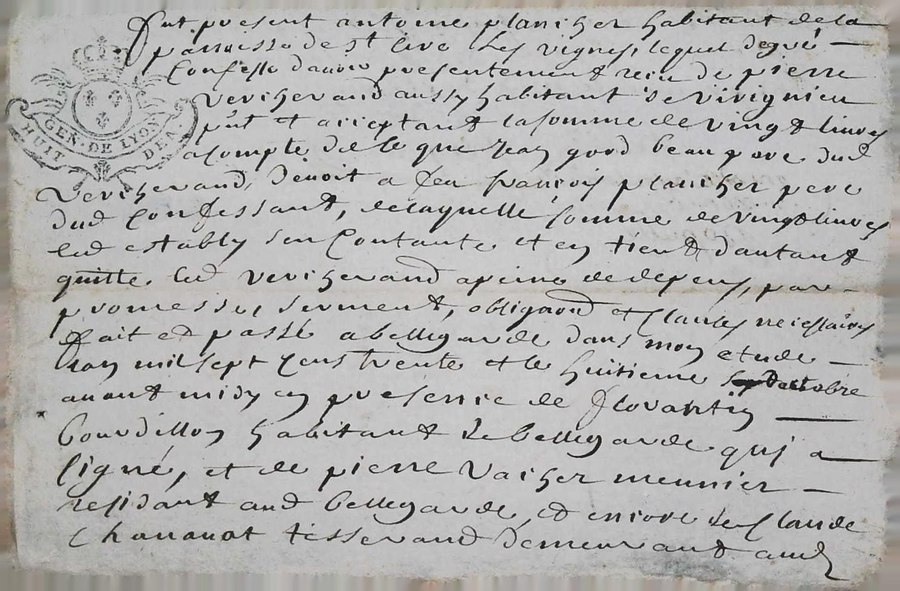 fut present antoine plancher habitant de la
parroisse de st cire Les vignes, lequel de gré
Confesse d'avoir presentement reçu de pierre
Vercherand aussy habitant de
pnt et acceptant la somme de vingt livres
GEN. DE LYON
HUIT DEN
acompte de ce que Jean beau pere dud
Vercherand, devoit a feu françois plancher pere
dud Confessant, de laquelle somme de vingt livres
led estably sen Contante et en tient d'autant
quitte led Vercherand a peine de depens, par
promesses, serment, obligaon et Clauses necessaires
fait et passé a bellegarde dans mon etude
Lan mil sept Cens trente et le huitieme octobre
avant midy en presence de florantin
bourdillon habitant de bellegarde qui a
signé, et de pierre Vacher meunier
residant aud bellegarde, et encore de Claude
Chananot tisserand demeurant aud